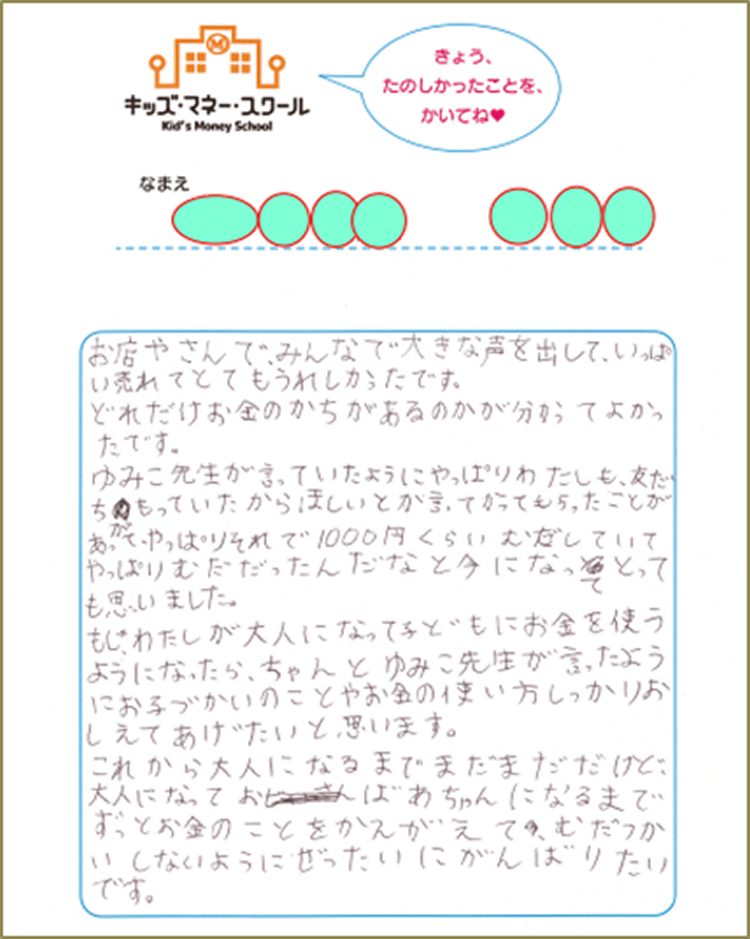 キッズ・マネー・スクール
Kid's Money School
きょう、
たのしかったことを、
かいてね♥
なまえ
お店やさんで、みんなで大きな声を出して、いっぱ
い売れてとてもうれしかったです。
どれだけお金のかちがあるのかが分かってよかっ
たです。
ゆみこ先生が言っていたようにやっぱりわたしも、友だ
ちがもっていたからほしいとか言ってかってもらったことが
あって、やっぱりそれで1000円くらいむだしていて
やっぱりむだだったんだなと今になってとって
も思いました。
もし、わたしが大人になって子どもにお金を使う
ようになったら、ちゃんとゆみこ先生が言ったよう
にお子づかいのことやお金の使い方しっかりお
しえてあげたいと思います。
これから大人になるまでまだまだだけど、
大人になっておばあちゃんになるまで
ずっとお金のことをかんがえて、むだつか
いしないようにぜったいにがんばりたい
です。